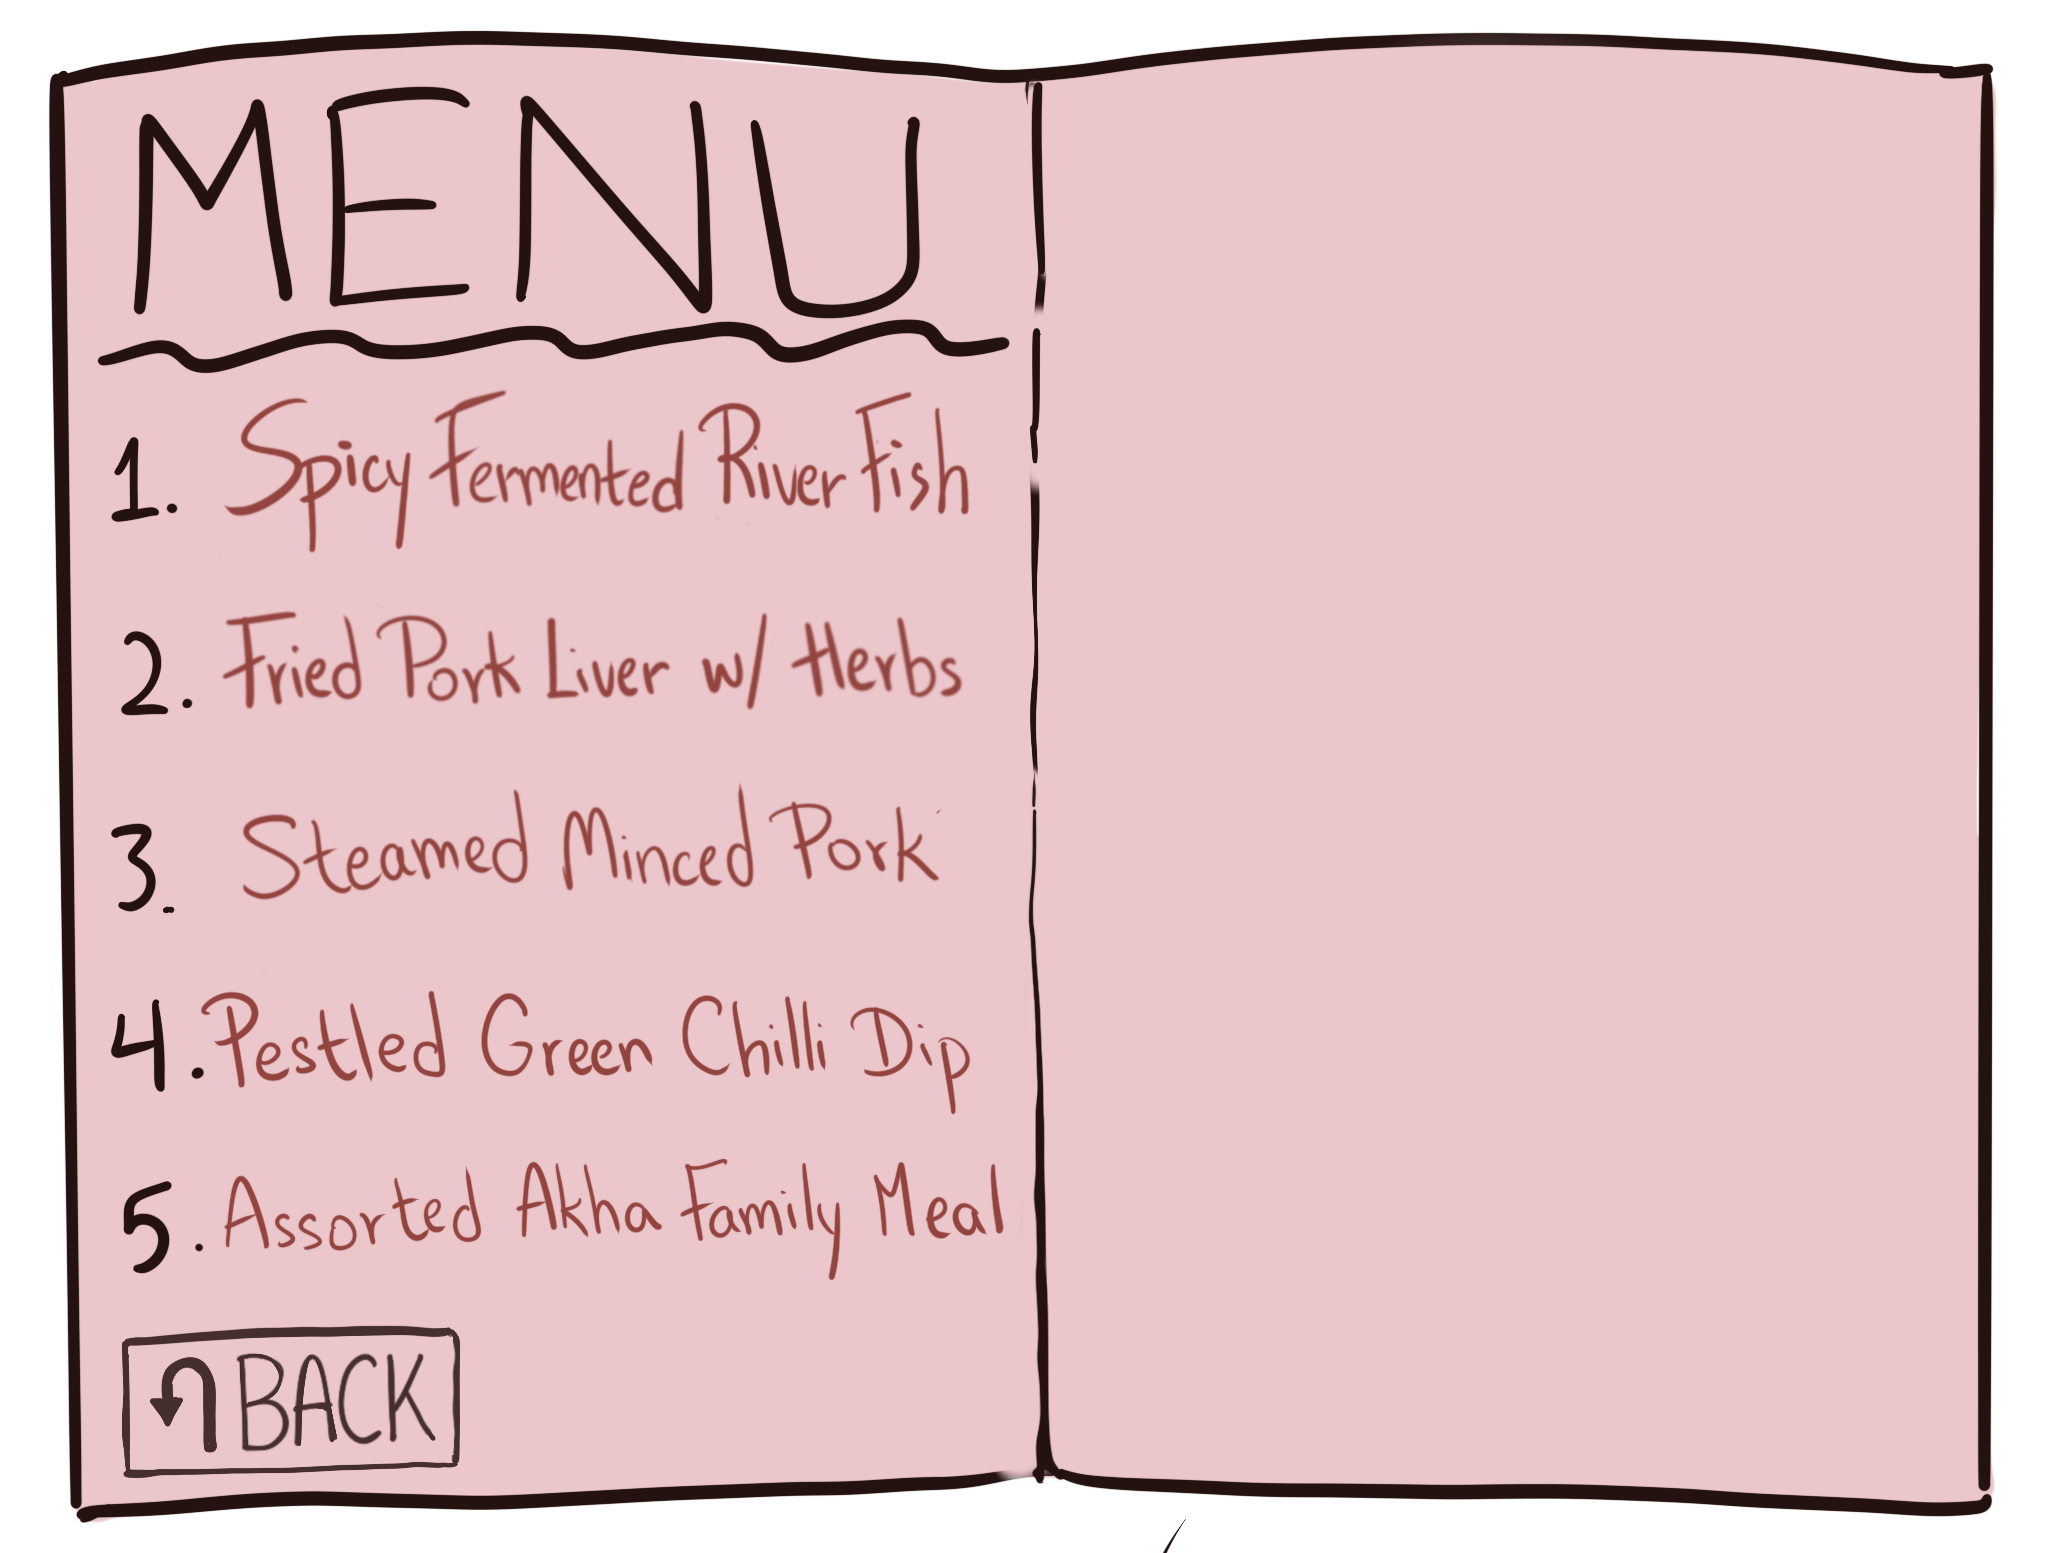 MENU
1. Spicy Fermented River Fish
2. Fried Pork Liver w/ Herbs
3. Steamed Minced Pork
4. Pestled Green Chilli Dip
5. Assorted Akha Family Meal
BACK